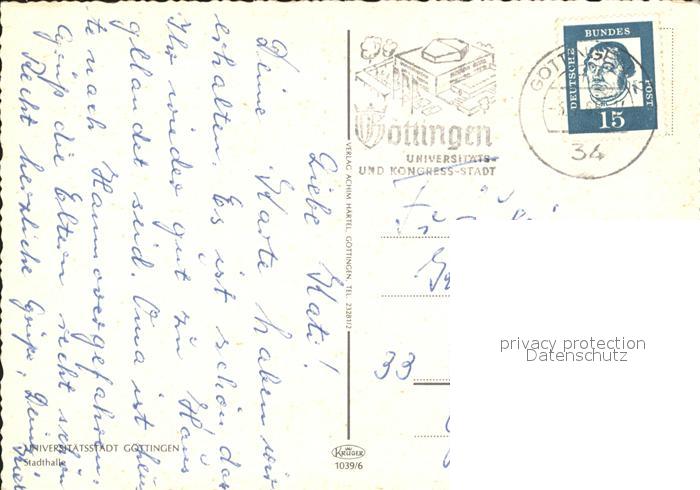 Liebe Kati!
Deine Karte haben wir
erhalten. Es ist schön das
Ihr wieder gut zu Haus
gelandet seid. Oma ist heu
te nach Hannover gefahren.
Grüß die Eltern recht schön
Recht herzliche Grüße, Deine
UNIVERSITÄTSSTADT GÖTTINGEN
Stadthalle
VERLAG ACHIM HARTEL, GÖTTINGEN, TEL.
KRÜGER
1039/6
Göttingen
UNIVERSITÄTS-
UND KONGRESS-STADT
GÖTTINGEN
34
DEUTSCHE BUNDES POST
15
33
privacy protection
Datenschutz